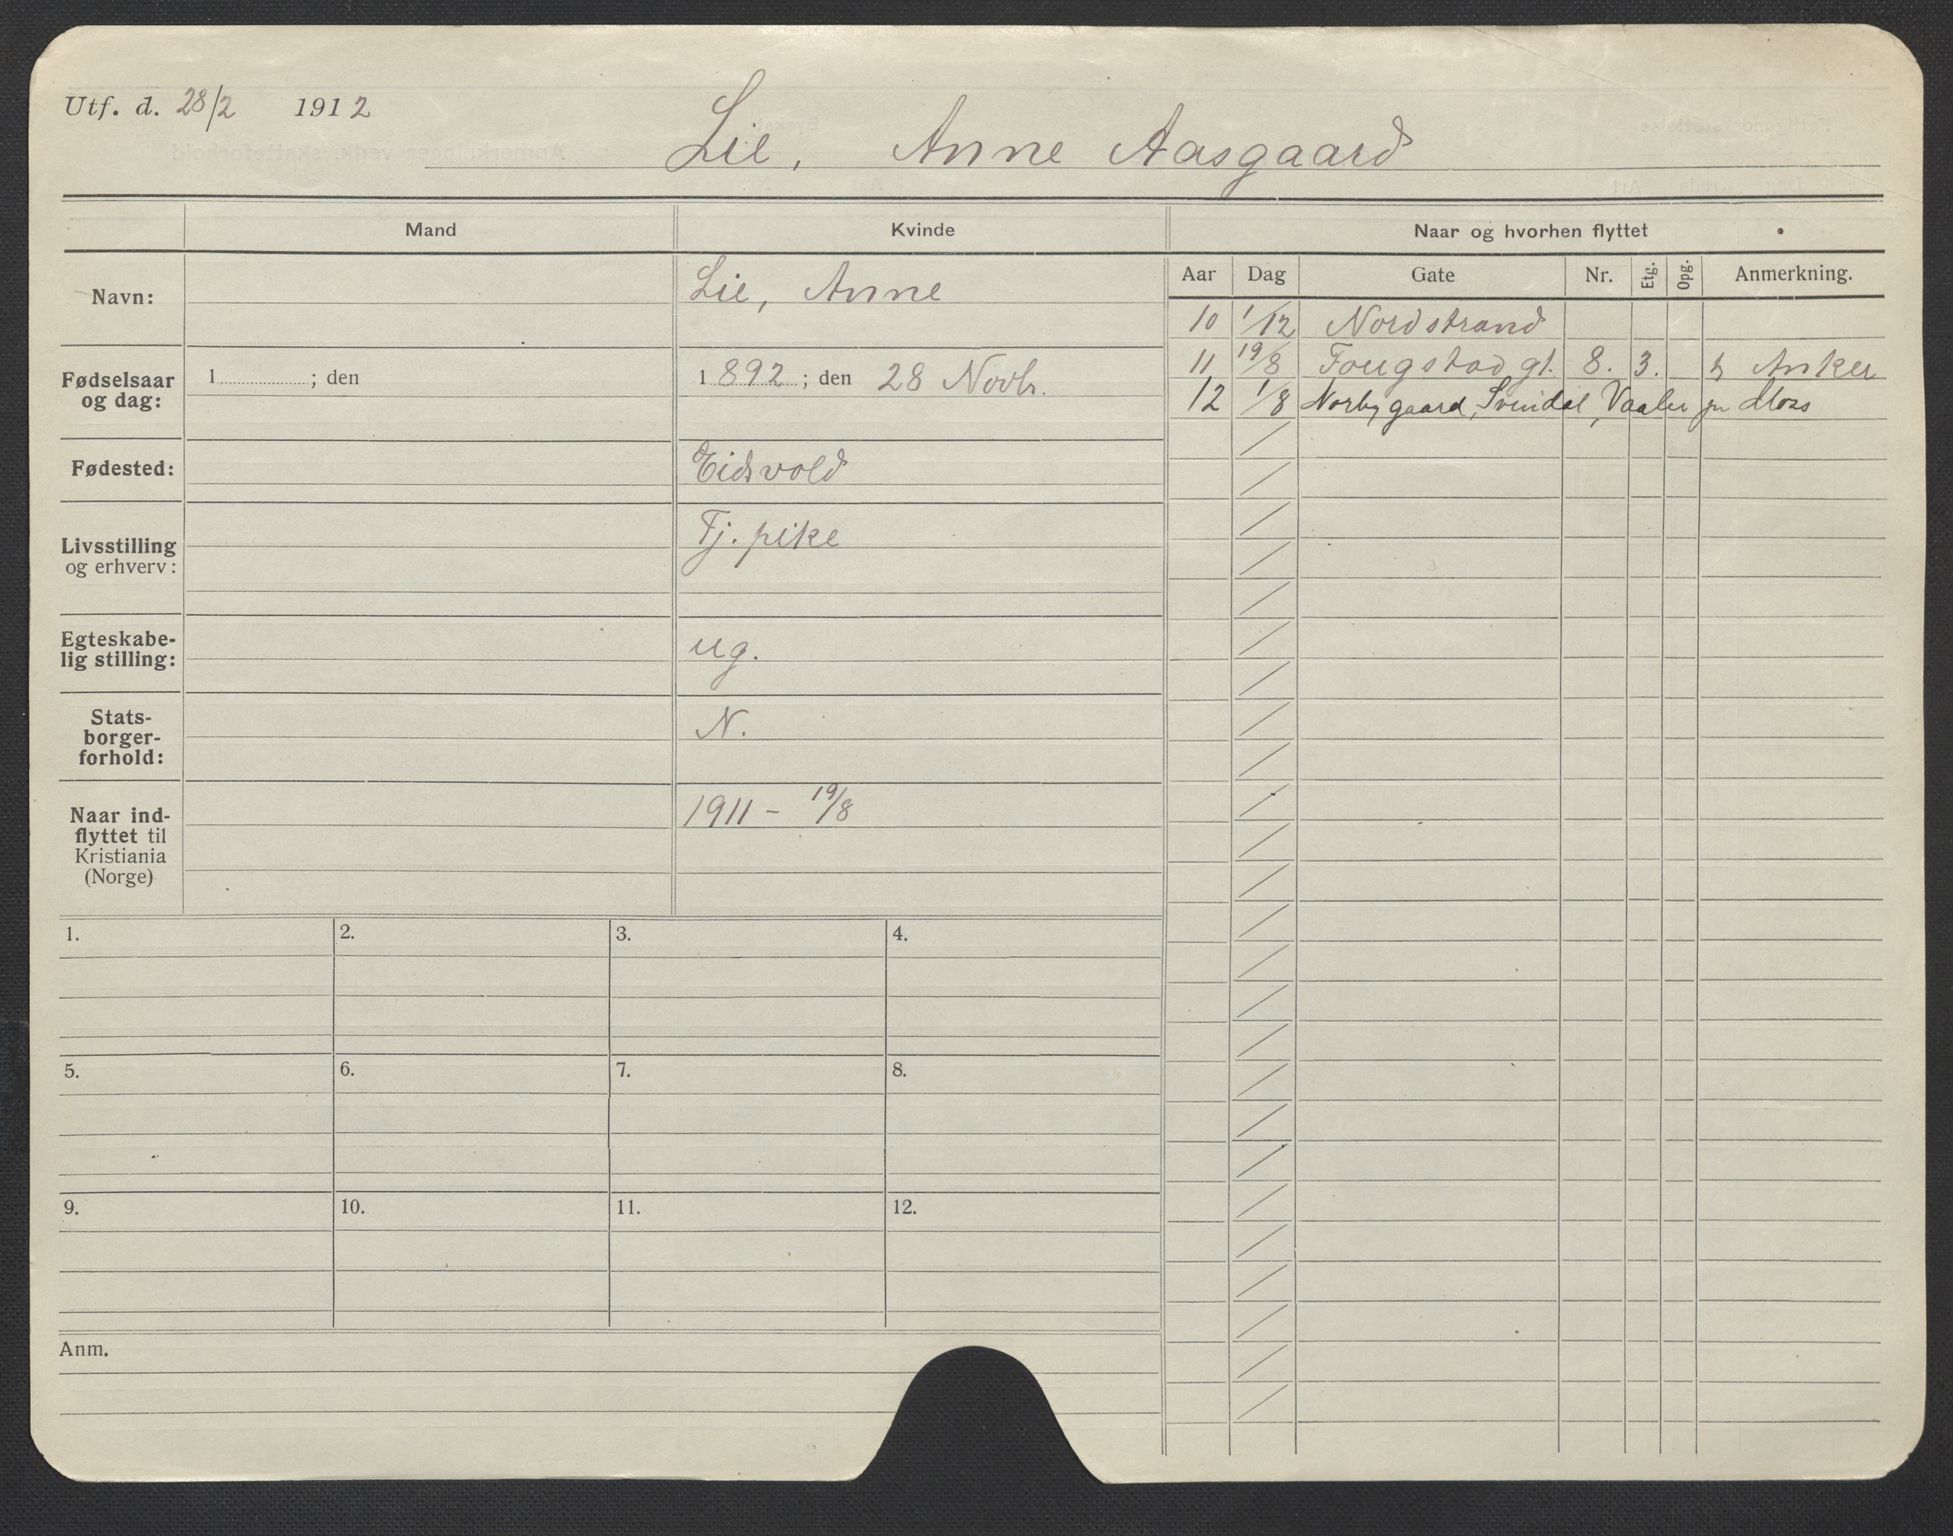 Utf. d. 28/2 1912
Lie, Anne Aasgaard
Mand
Kvinde
Naar og hvorhen flyttet
Navn:
Lie, Anne
Fødselsaar
og dag:
1 ; den
1892 ; den 28 Novbr.
Fødested:
Eidsvold
Livsstilling
og erhverv:
Tj. pike
Egteskabe-
lig stilling:
ug.
Stats-
borger-
forhold:
N.
Naar ind-
flyttet til
Kristiania
(Norge)
1911 - 19/8
Aar Dag Gate Nr. Etg. Opg. Anmerkning.
10 1/12 Nordstrand
11 19/8 Fougstad gt. 8. 3. h Anker
12 1/8 Norbygaard, Svindal, Vaaler pr Moss
1. 2. 3. 4.
5. 6. 7. 8.
9. 10. 11. 12.
Anm.